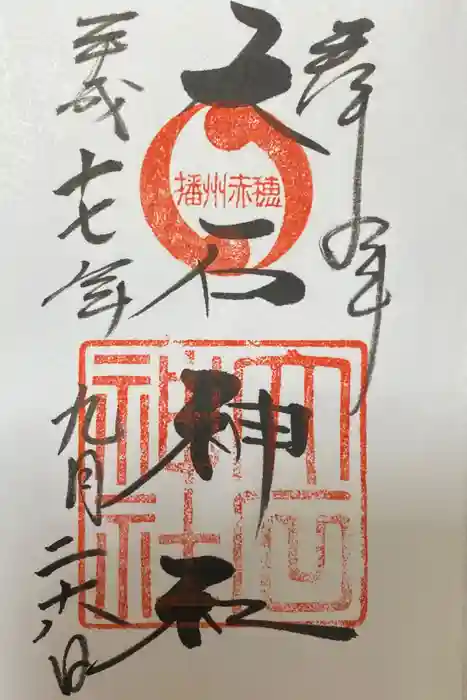 奉拝
大石神社
播州赤穂
大石神社
平成十七年九月二十八日